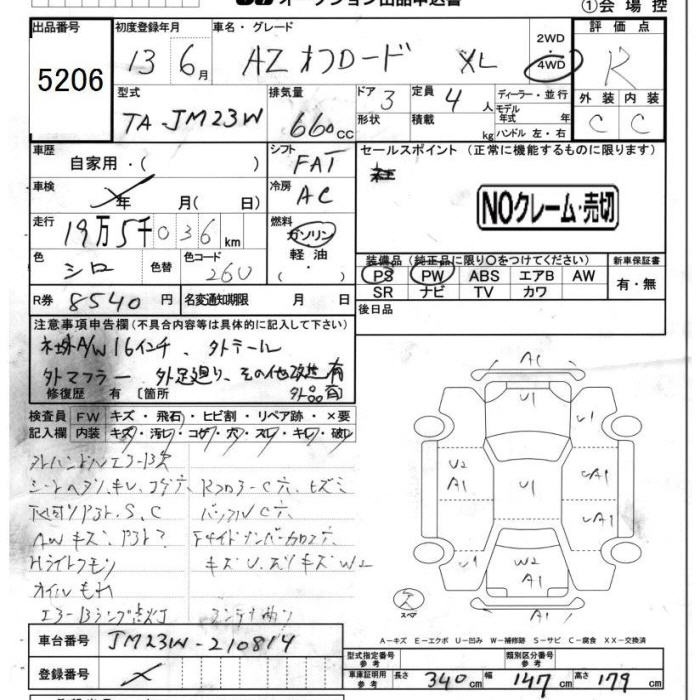 ①会場控
出品番号
初度登録年月
車名・グレード
評価点
5206
13 6月
AZオフロード XL
2WD
4WD
R
型式
排気量
ドア
定員
ディーラー・並行
外装
内装
TA-JM23W
660cc
3
4人
モデル
年式 年
C
C
形状
積載
kg
ハンドル 左・右
車歴
自家用・( )
シフト
FAT
セールスポイント (正常に機能するものに限ります)
車検
年 月( 日)
冷房
AC
NOクレーム・売切
走行
19万5千036km
燃料
ガソリン
軽油
色
シロ
色替
色コード
26U
装備品 (純正品に限り○をつけてください)
新車保証書
PS
PW
ABS
エアB
AW
有・無
SR
ナビ
TV
カワ
R券
8540円
名変通知期限
月 日
後日品
注意事項申告欄(不具合内容等は具体的に記入して下さい)
社外A/W16インチ、外テール
外マフラー 外足廻り、その他改造有
修復歴 有 [箇所
外品有]
検査員
FW
キズ・飛石・ヒビ割・リペア跡・×要
記入欄
内装
キズ・汚レ・コゲ・穴・スレ・キレ・破レ
シートヘタリ、キレ、コゲ穴
RフロアーC穴、ヒズミ
下回りアライ、S、C
バックパネルC穴
AWキズ
Hライトクモリ
オイルもれ
エアーBランプ点灯
アンテナ曲り
A1
U1
U1
U2
A1
U1
UA1
UA1
U1
W2
A1
U1
A1
ス
スペア
A−キズ E−エクボ U−凹み W−補修跡 S−サビ C−腐食 XX−交換済
車台番号
JM23W-210814
登録番号
型式指定番号
参考
類別区分番号
参考
車庫証明用
参考
長さ
340cm
幅
147cm
高さ
179cm